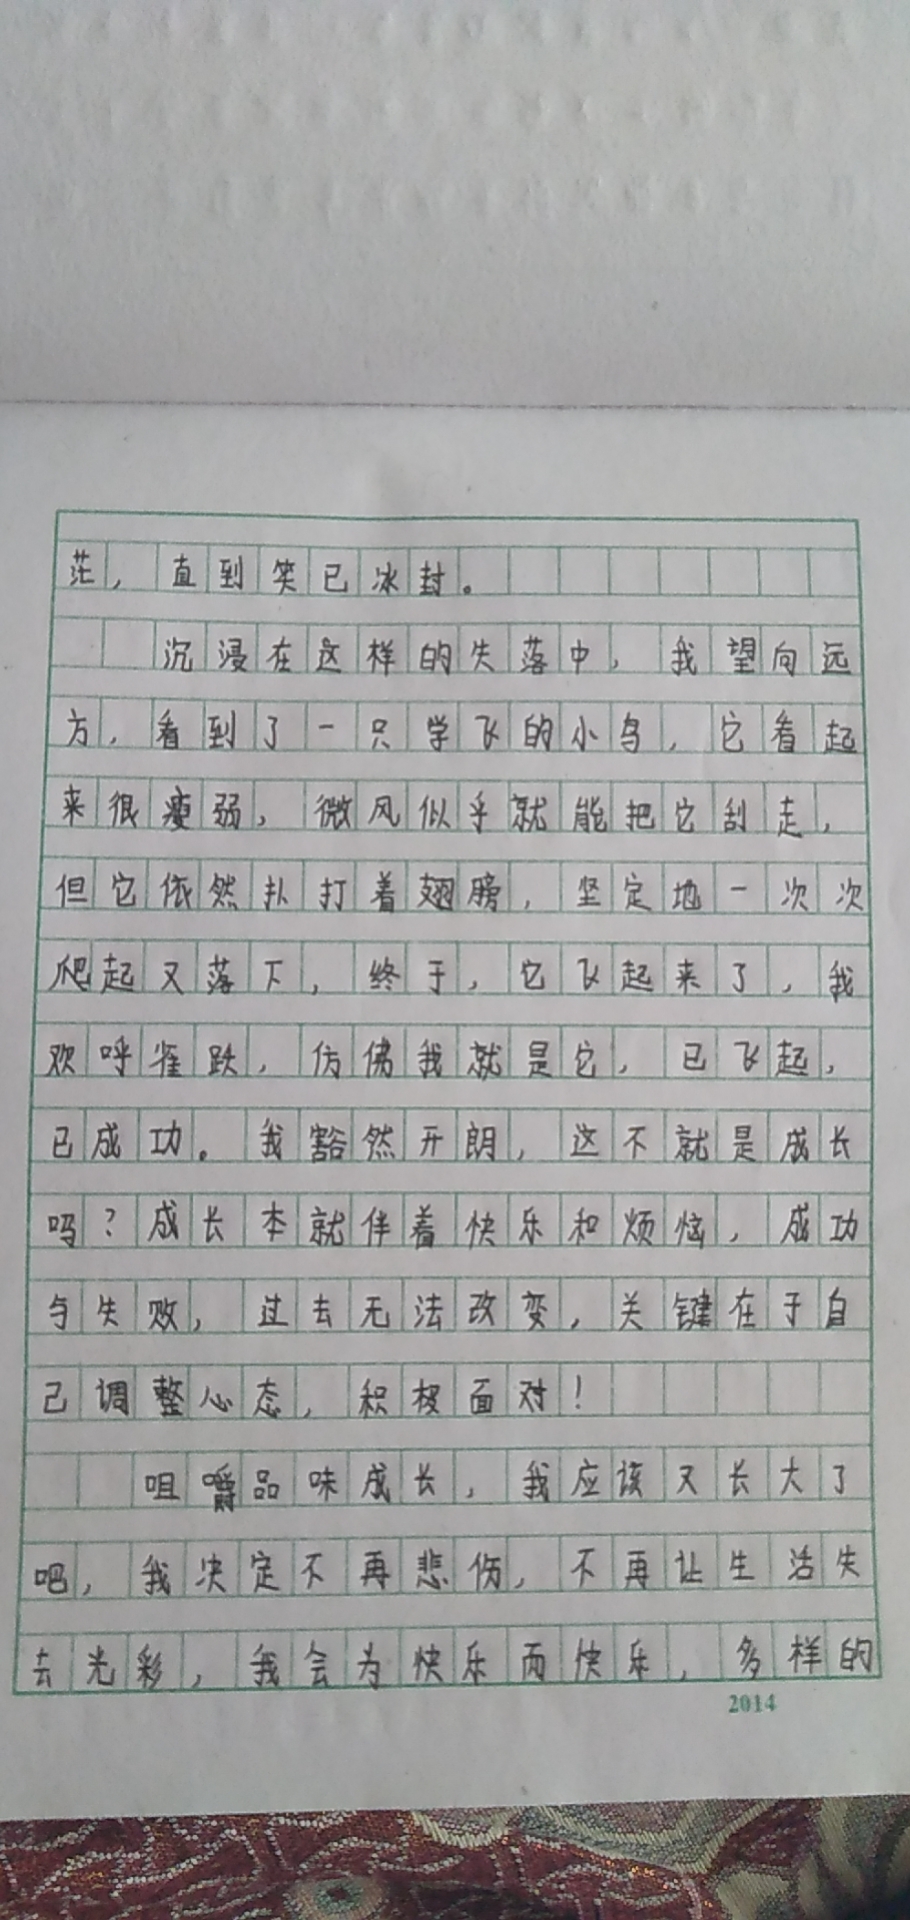 茫，直到笑已冰封。
沉浸在这样的失落中，我望向远
方，看到了一只学飞的小鸟，它看起
来很瘦弱，微风似乎就能把它刮走，
但它依然扑打着翅膀，坚定地一次次
爬起又落下，终于，它飞起来了，我
欢呼雀跃，仿佛我就是它，已飞起，
已成功。我豁然开朗，这不就是成长
吗？成长本就伴着快乐和烦恼，成功
与失败，过去无法改变，关键在于自
己调整心态，积极面对！
咀嚼品味成长，我应该又长大了
吧，我决定不再悲伤，不再让生活失
去光彩，我会为快乐而快乐，多样的
2014